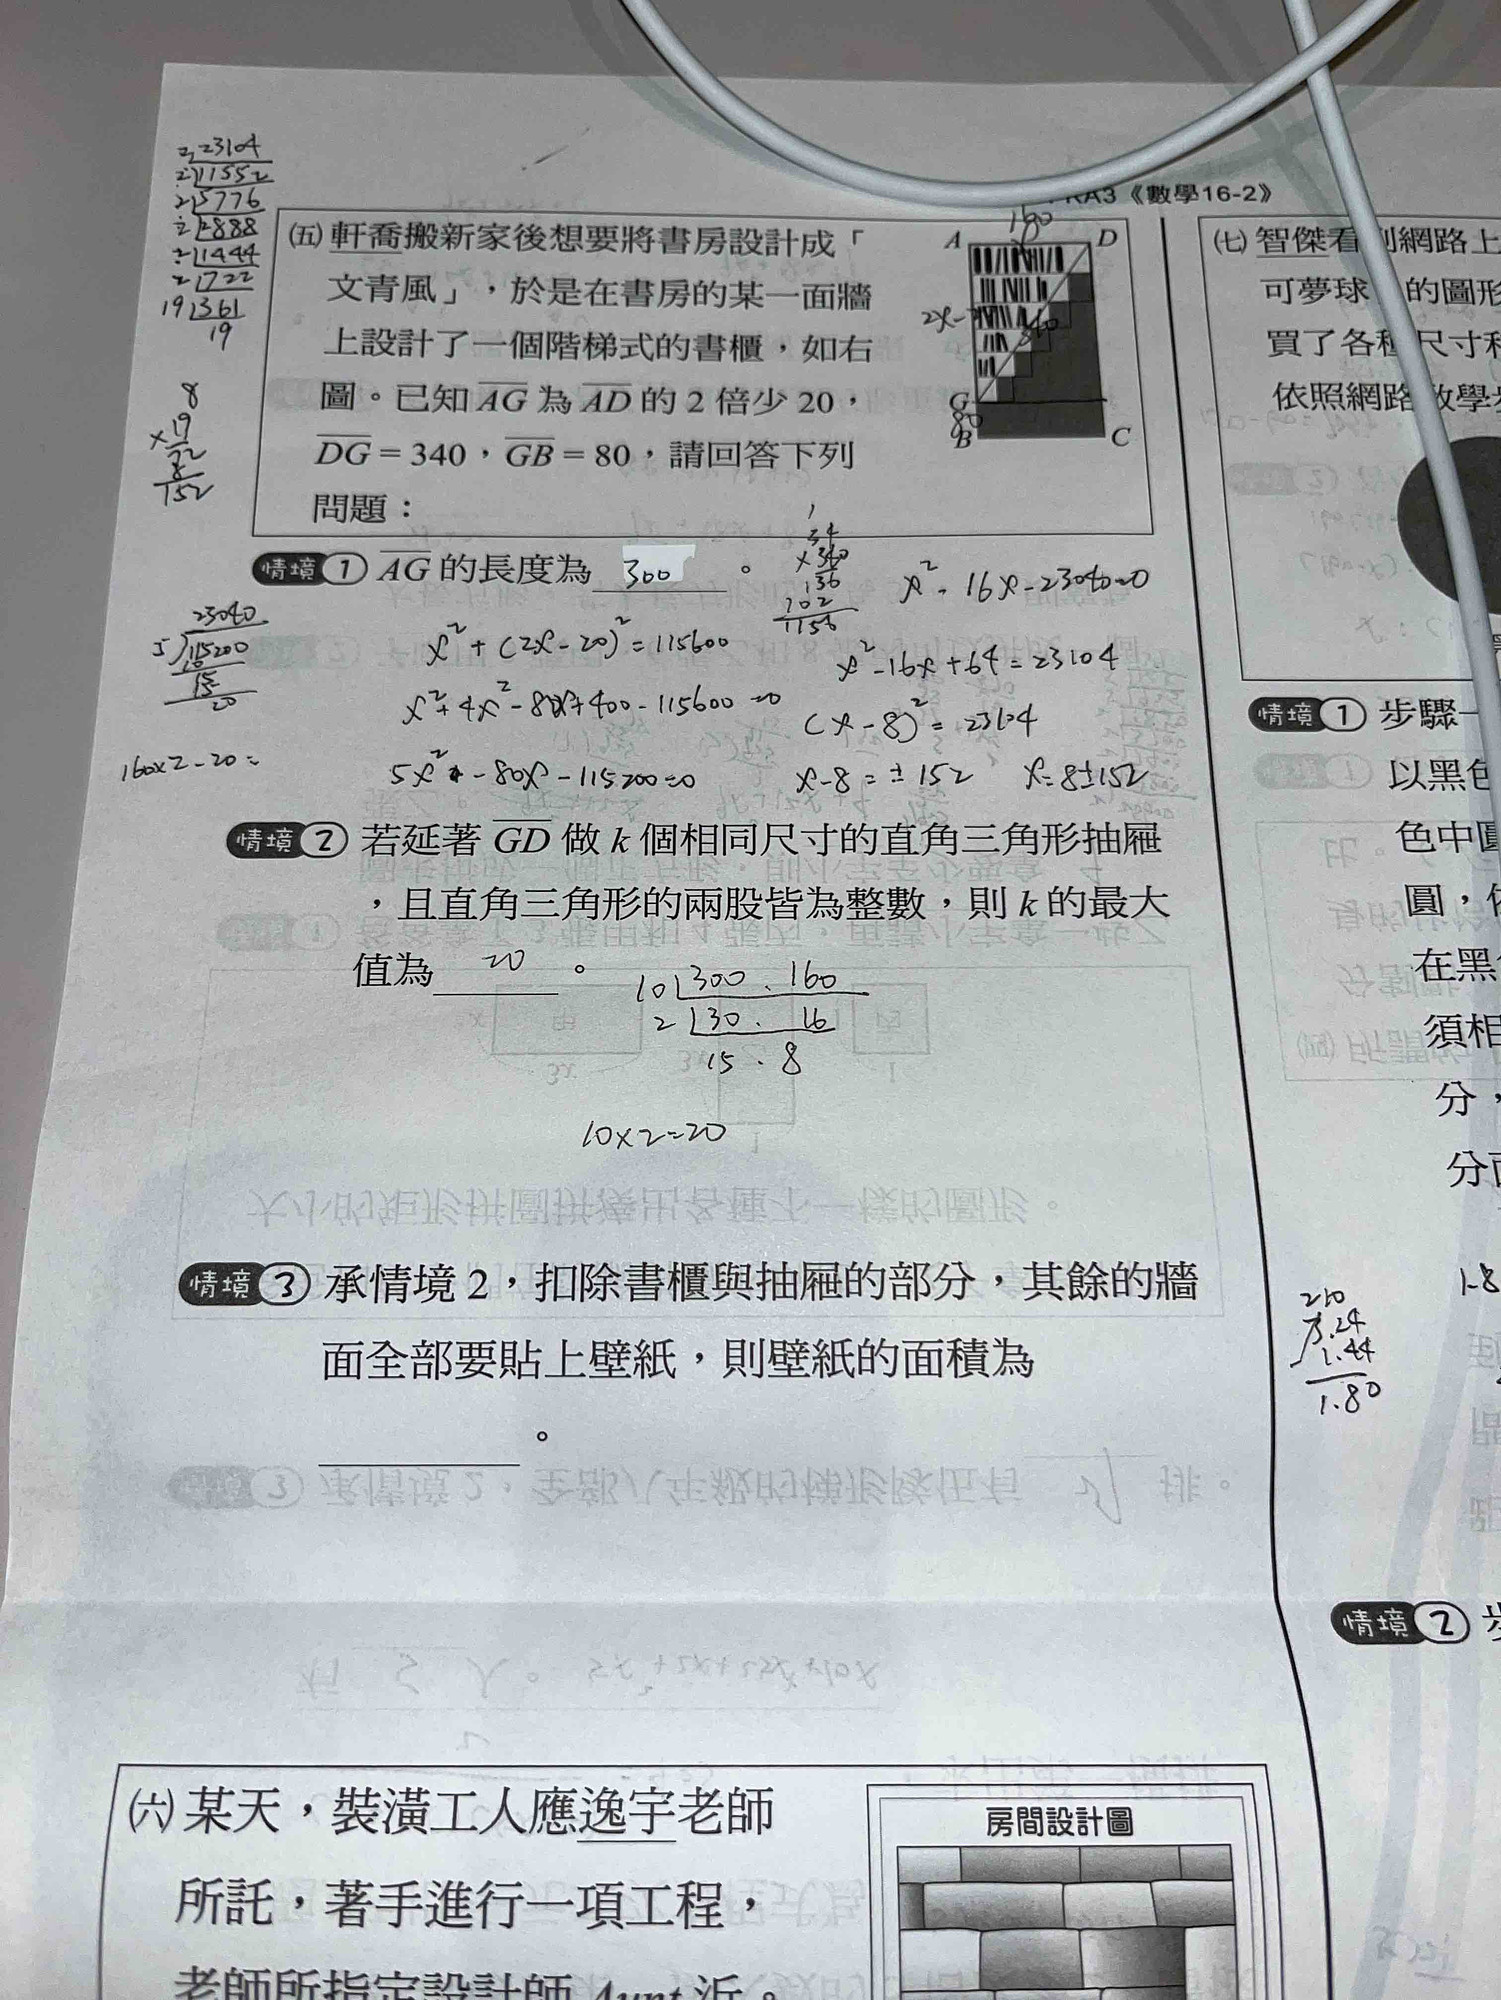 RA3《數學16-2》
2 23104
2 11552
2 5776
2 2888
2 1444
2 722
19 361
19
8
×19
72
8
152
㈤ 軒喬搬新家後想要將書房設計成「
文青風」，於是在書房的某一面牆
上設計了一個階梯式的書櫃，如右
圖。已知 AG 為 AD 的 2 倍少 20，
DG = 340，GB = 80，請回答下列
問題：
160
A D
340
G
80
B C
情境 1 AG 的長度為 300 。
34
×340
136
102
1156
x²-16x-23040=0
23040
5 115200
10
15
20
x²+(2x-20)²=115600
x²-16x+64=23104
x²+4x²-80x+400-115600=0
(x-8)²=23104
160×2-20=
5x²-80x-115200=0
x-8=±152 x=8±152
情境 2 若延著 GD 做 k 個相同尺寸的直角三角形抽屜
，且直角三角形的兩股皆為整數，則 k 的最大
值為 20 。
10 300 . 160
2 30 . 16
15 . 8
10×2=20
情境 3 承情境 2，扣除書櫃與抽屜的部分，其餘的牆
面全部要貼上壁紙，則壁紙的面積為
。
㈥ 某天，裝潢工人應逸宇老師
所託，著手進行一項工程，
老師所指定設計師 Aunt 近。
房間設計圖
㈦ 智傑看 網路上
可夢球 的圖形
買了各種尺寸
依照網路教學
情境 1 步驟一
以黑色
色中圓
圓，
在黑
須相
分，
分
1.8
210
3.24
1.44
1.80
情境 2